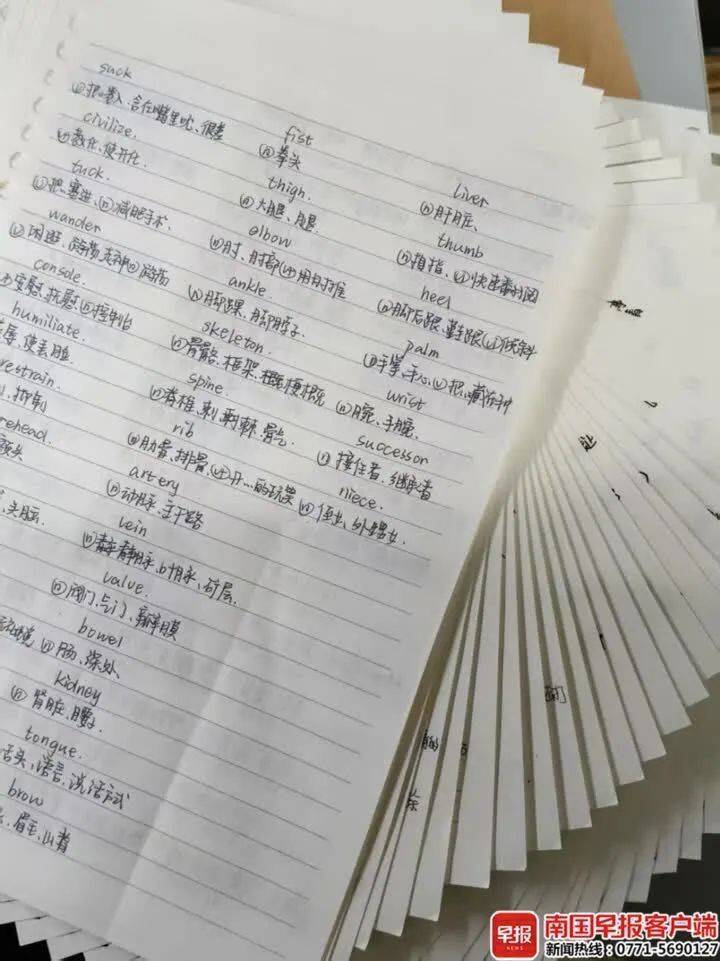 suck
ⓥ把…卷入.含在嘴里吮、很差
civilize.
ⓥ教化、使开化.
tuck.
ⓥ把…塞进、ⓝ减肥手术.
wander
ⓥ闲逛、游荡、走神ⓝ游荡
console.
安慰、抚慰ⓝ控制台
humiliate
辱、使丢脸
restrain.
、抑制
rehead.
额头
、头脑
fist
ⓝ拳头
thigh.
ⓝ大腿、股.
elbow
ⓝ肘、肘部ⓥ用肘推
ankle.
ⓝ脚踝、脚脖子.
skeleton.
ⓝ骨骼、框架、梗概
spine.
ⓝ脊椎、刺、骨气.
rib
ⓝ肋骨、排骨、ⓥ开…的玩笑
artery
ⓝ动脉、主干路
vein
ⓝ静脉、叶脉、矿层.
value.
ⓝ阀门、瓣膜
bowel
ⓝ肠、深处、
kidney
ⓝ肾脏、腰子.
tongue.
舌头、语言、说话方式
brow
、眉毛、山脊
liver
ⓝ肝脏、
thumb
ⓝ拇指、ⓥ快速翻阅
heel
ⓝ脚后跟、鞋跟ⓥ倾斜
palm
ⓝ手掌、手心、ⓥ把…藏于手中
wrist
ⓝ腕、手腕.
successor
ⓝ接任者、继承者
niece.
ⓝ侄女、外甥女.
早报
NEWS
南国早报客户端
新闻热线：0771-5690127